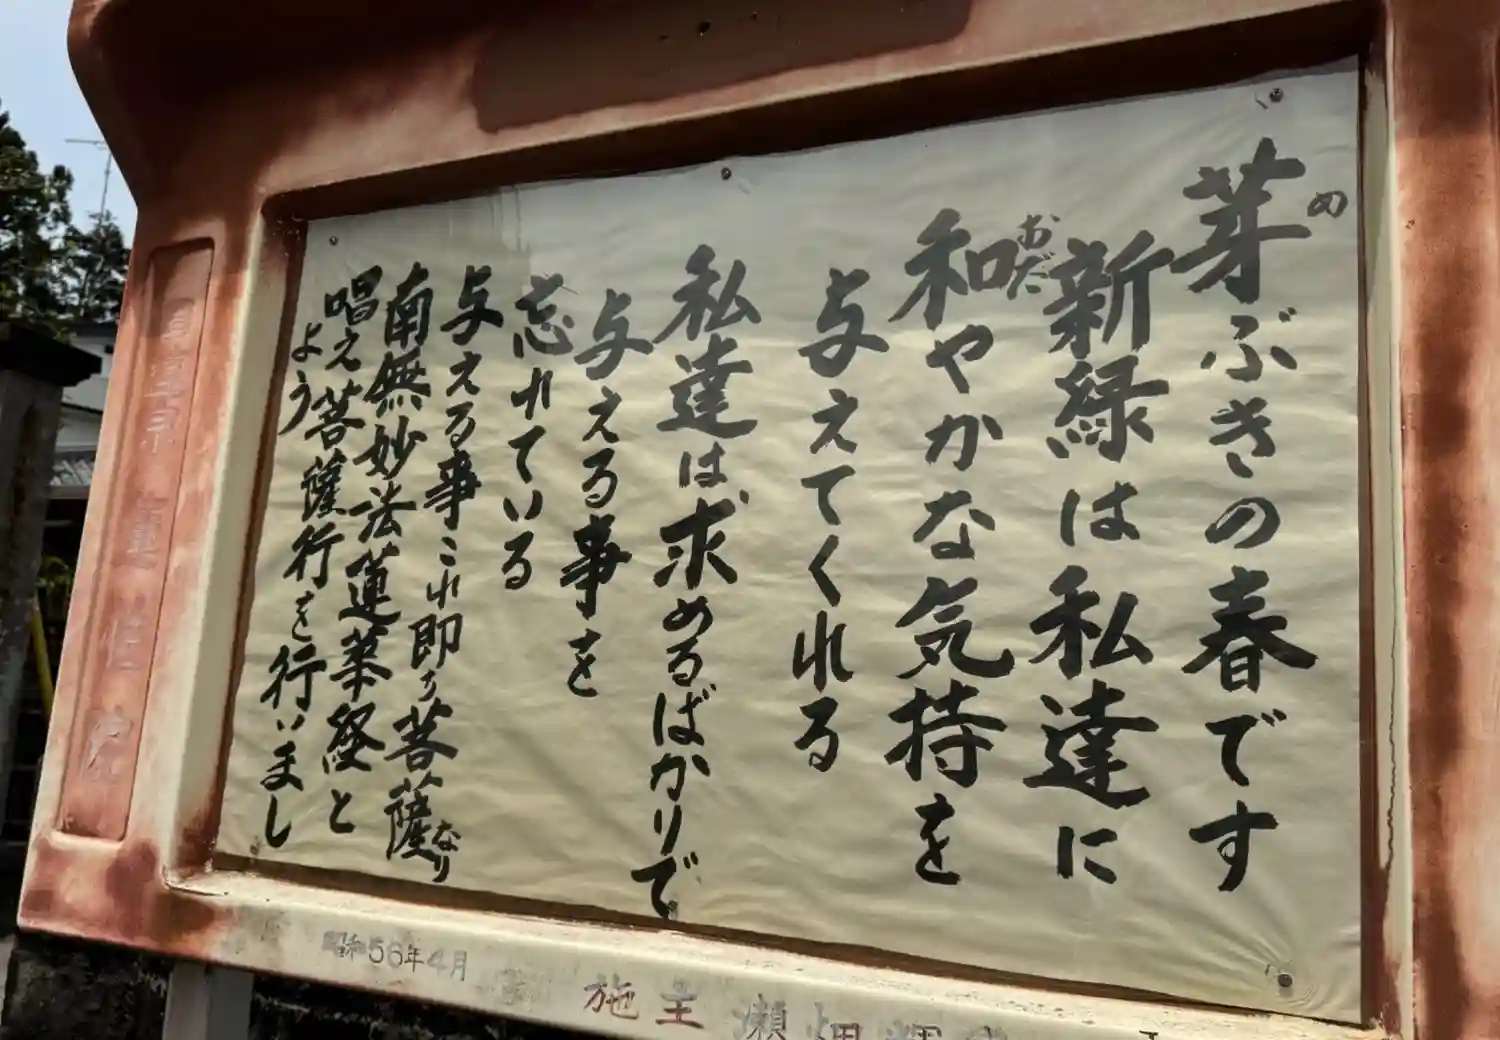 芽ぶきの春です
め
新緑は私達に
和やかな気持を
おだ
与えてくれる
私達は求めるばかりで
与える事を
忘れている
与える事これ即ち菩薩なり
南無妙法蓮華経と
唱え菩薩行を行いまし
よう
昭和56年4月
施主 瀬畑